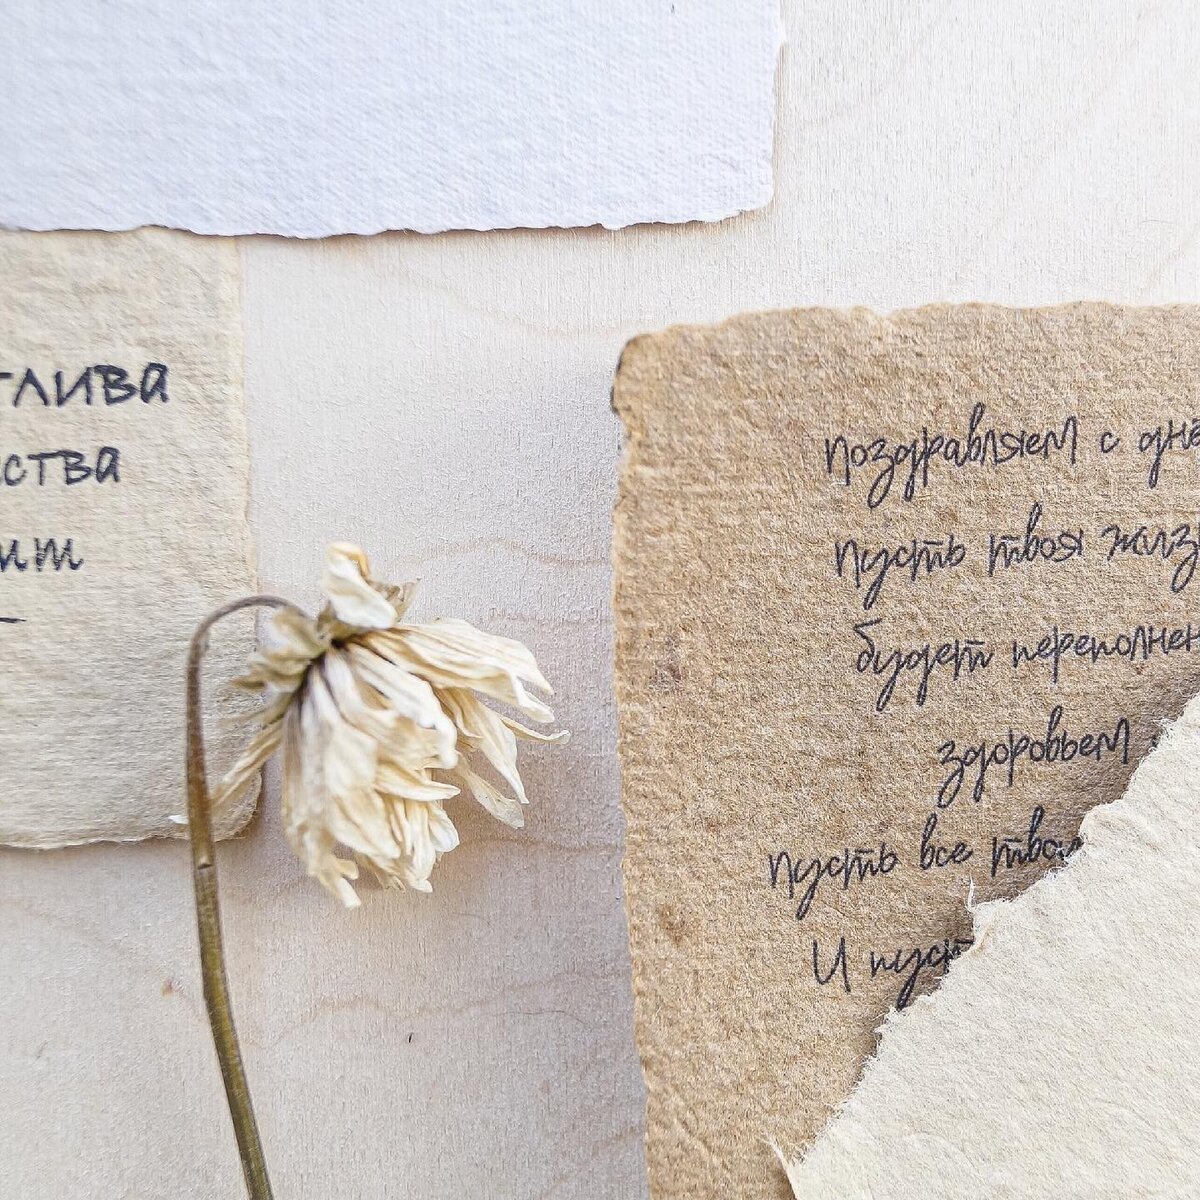 тлива
ства
ит
поздравляем с днё
пусть твоя жизн
будет переполнен
здоровьем
пусть все твои
И пуст